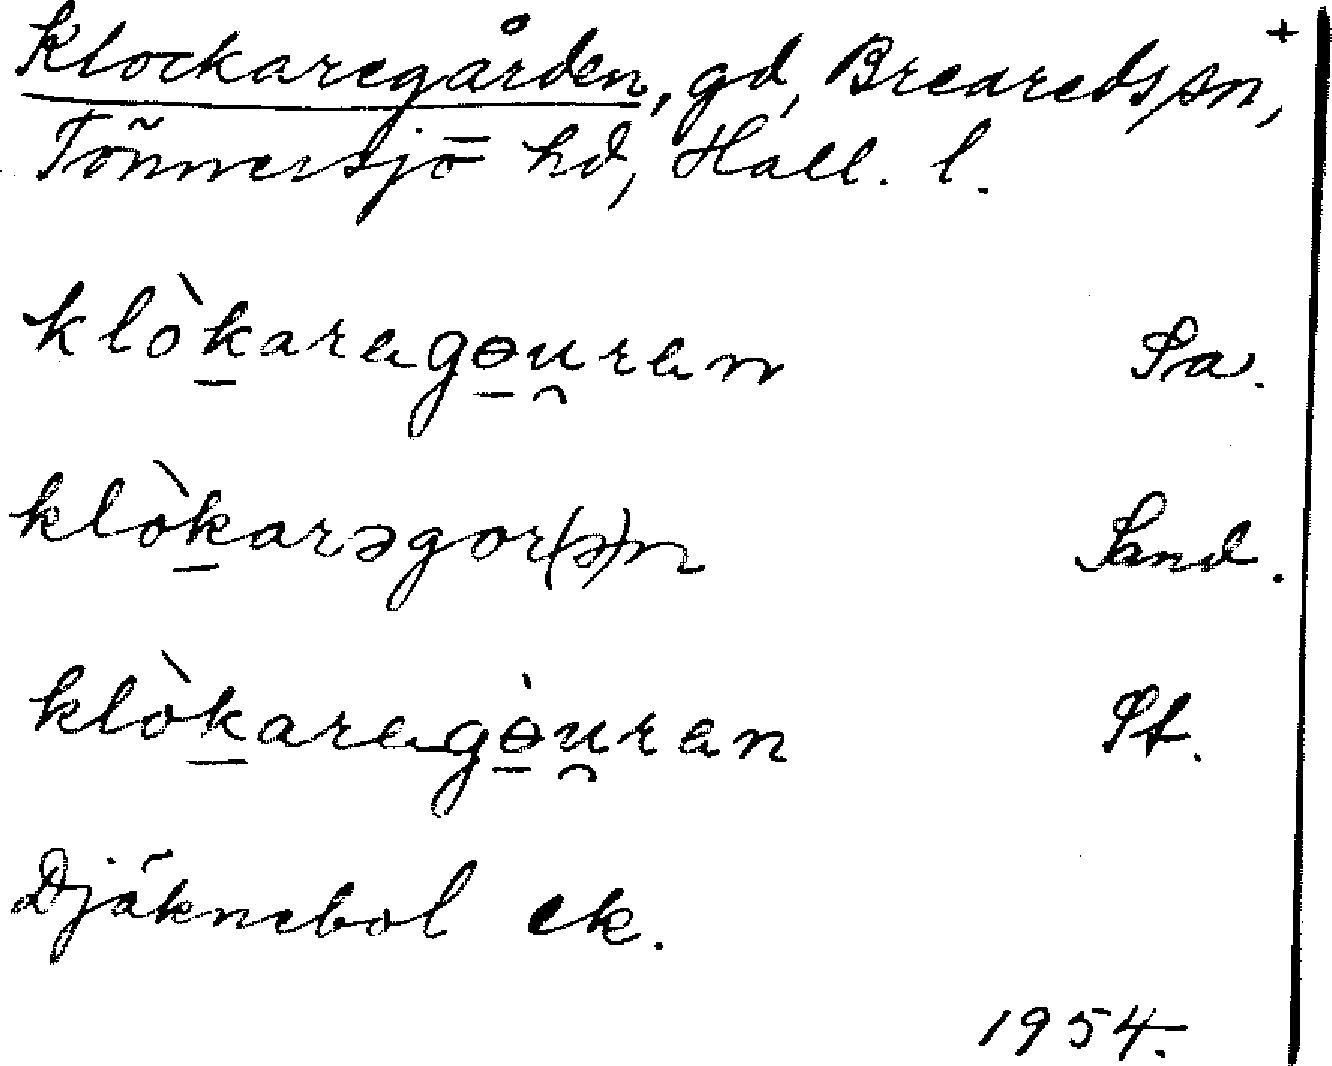 Klockaregården, gd, Breareds sn, +
Tönnersjö hd, Hall. l.
klòk̠aragɵ̠u̯ran Sa.
klòk̠arəgor(ə)n Sand.
klòk̠aragɵ̠̀u̯ran St.
Djäknebol ek.
1954.